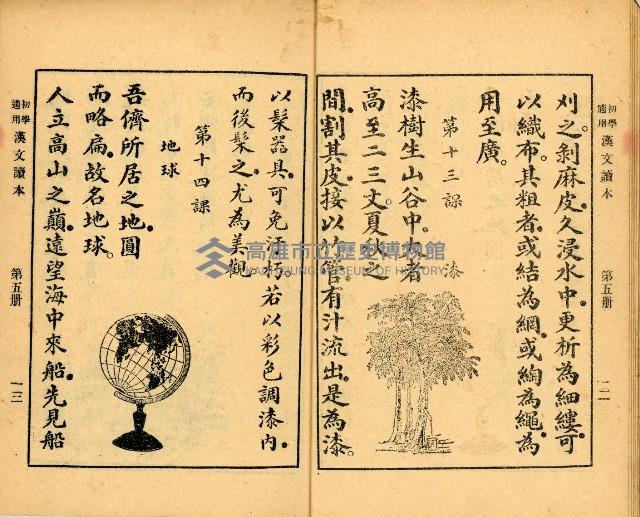 初學適用 漢文讀本 第五册 一二
刈之。剝麻皮。久浸水中。更析為細縷。可
以織布。其粗者。或結為網。或綯為繩。為
用至廣。
第十三課 漆
漆樹生山谷中。
高至二三丈。夏
間。割其皮。接以竹管。有汁流出。是為漆。
以髹器具。可免汚朽。若以彩色調漆內。
而後髹之。尤為美觀
第十四課
地球
吾儕所居之地。圓
而略扁。故名地球。
人立高山之巔。遠望海中來船。先見船
初學適用 漢文讀本 第五册 一三
高雄市立歷史博物館
KAOHSIUNG MUSEUM OF HISTORY